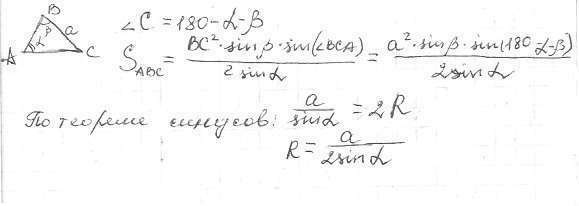 B
β
a
α
A
C
∠C = 180-α-β
S_ABC = BC²·sinβ·sin(∠BCA) / 2 sinα = a²·sinβ·sin(180-α-β) / 2sinα
По теореме синусов: a / sinα = 2R
R = a / 2sinα